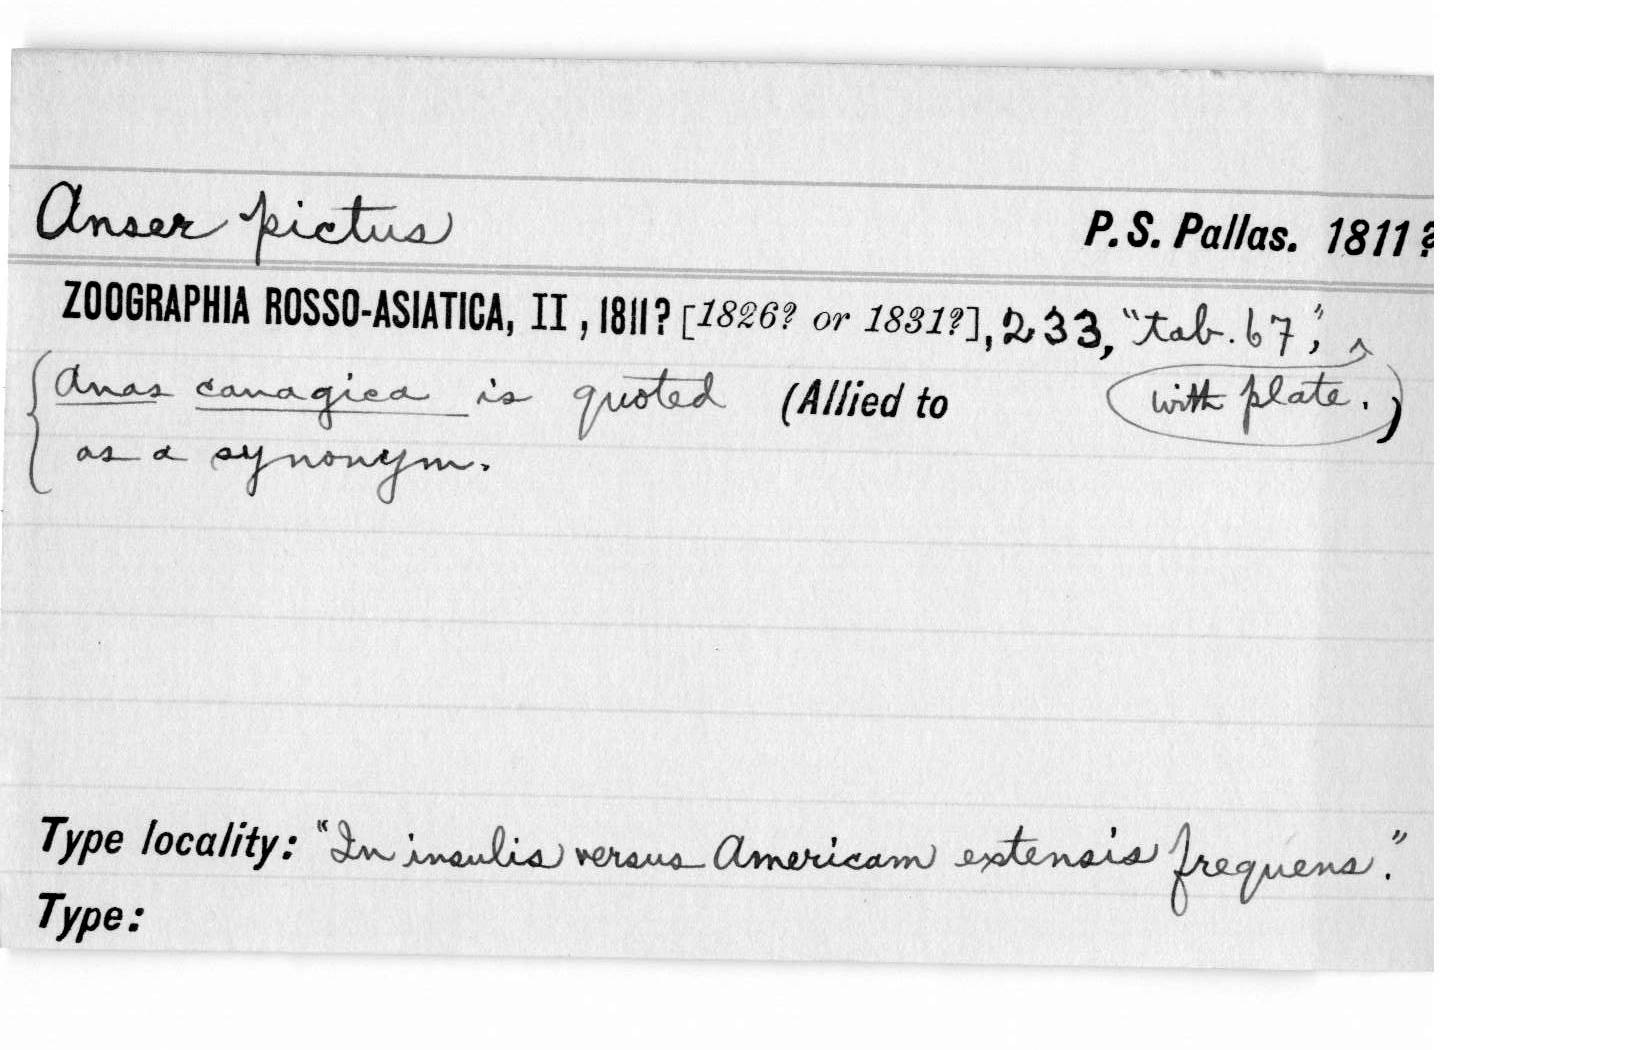 Anser pictus P. S. Pallas. 1811?
ZOOGRAPHIA ROSSO-ASIATICA, II, 1811? [1826? or 1831?], 233, "tab. 67",
Anas canagica is quoted (Allied to with plate.)
as a synonym.
Type locality: "In insulis versus Americam extensis frequens."
Type: